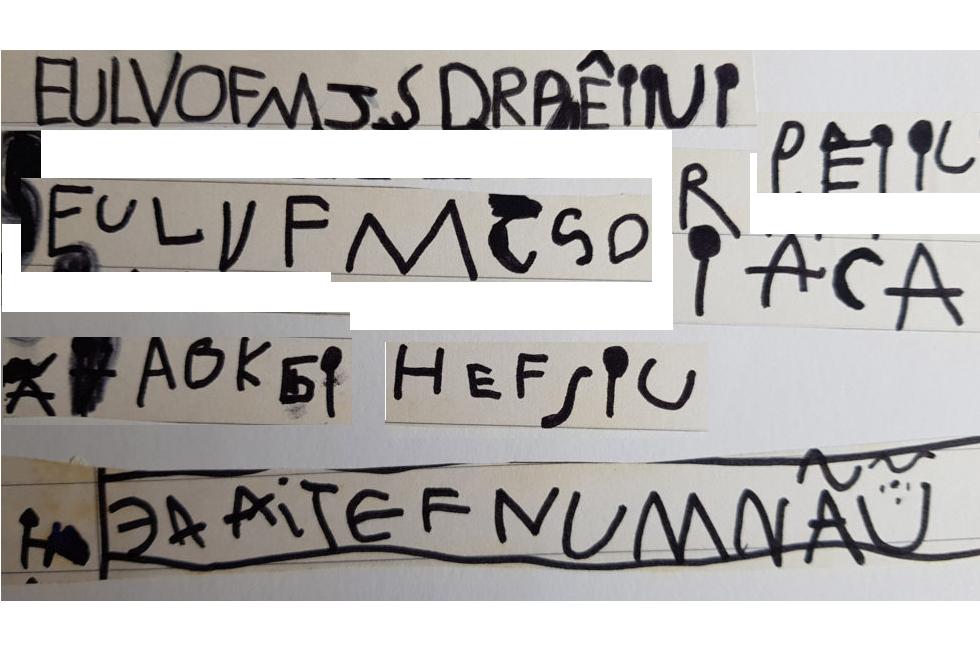 EULVOFMJSDRAÊINI
PEIIU
EULVFMTSO
R
IACA
AOKBI HEFSIU
ƎAAITEFNUMNÃŨ